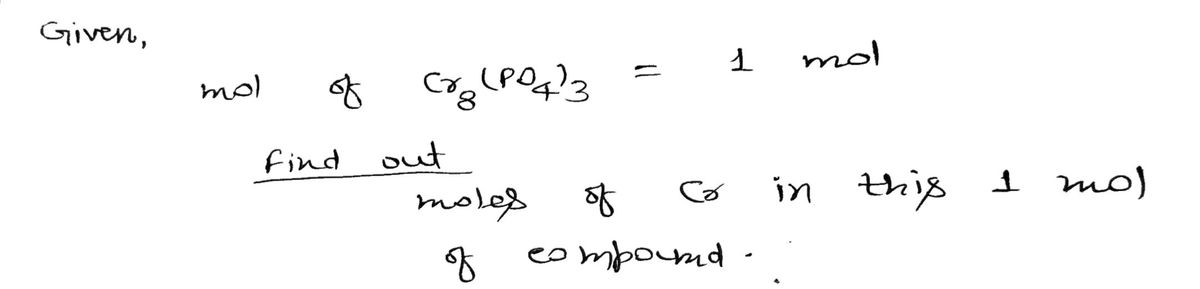 Given,
mol of Cr₈(PO₄)₃ = 1 mol
Find out
moles of Cr in this 1 mol
of compound.